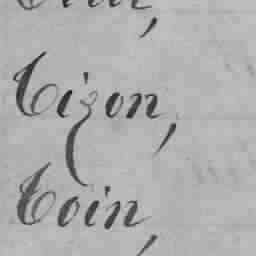 Tizon,
Toin,